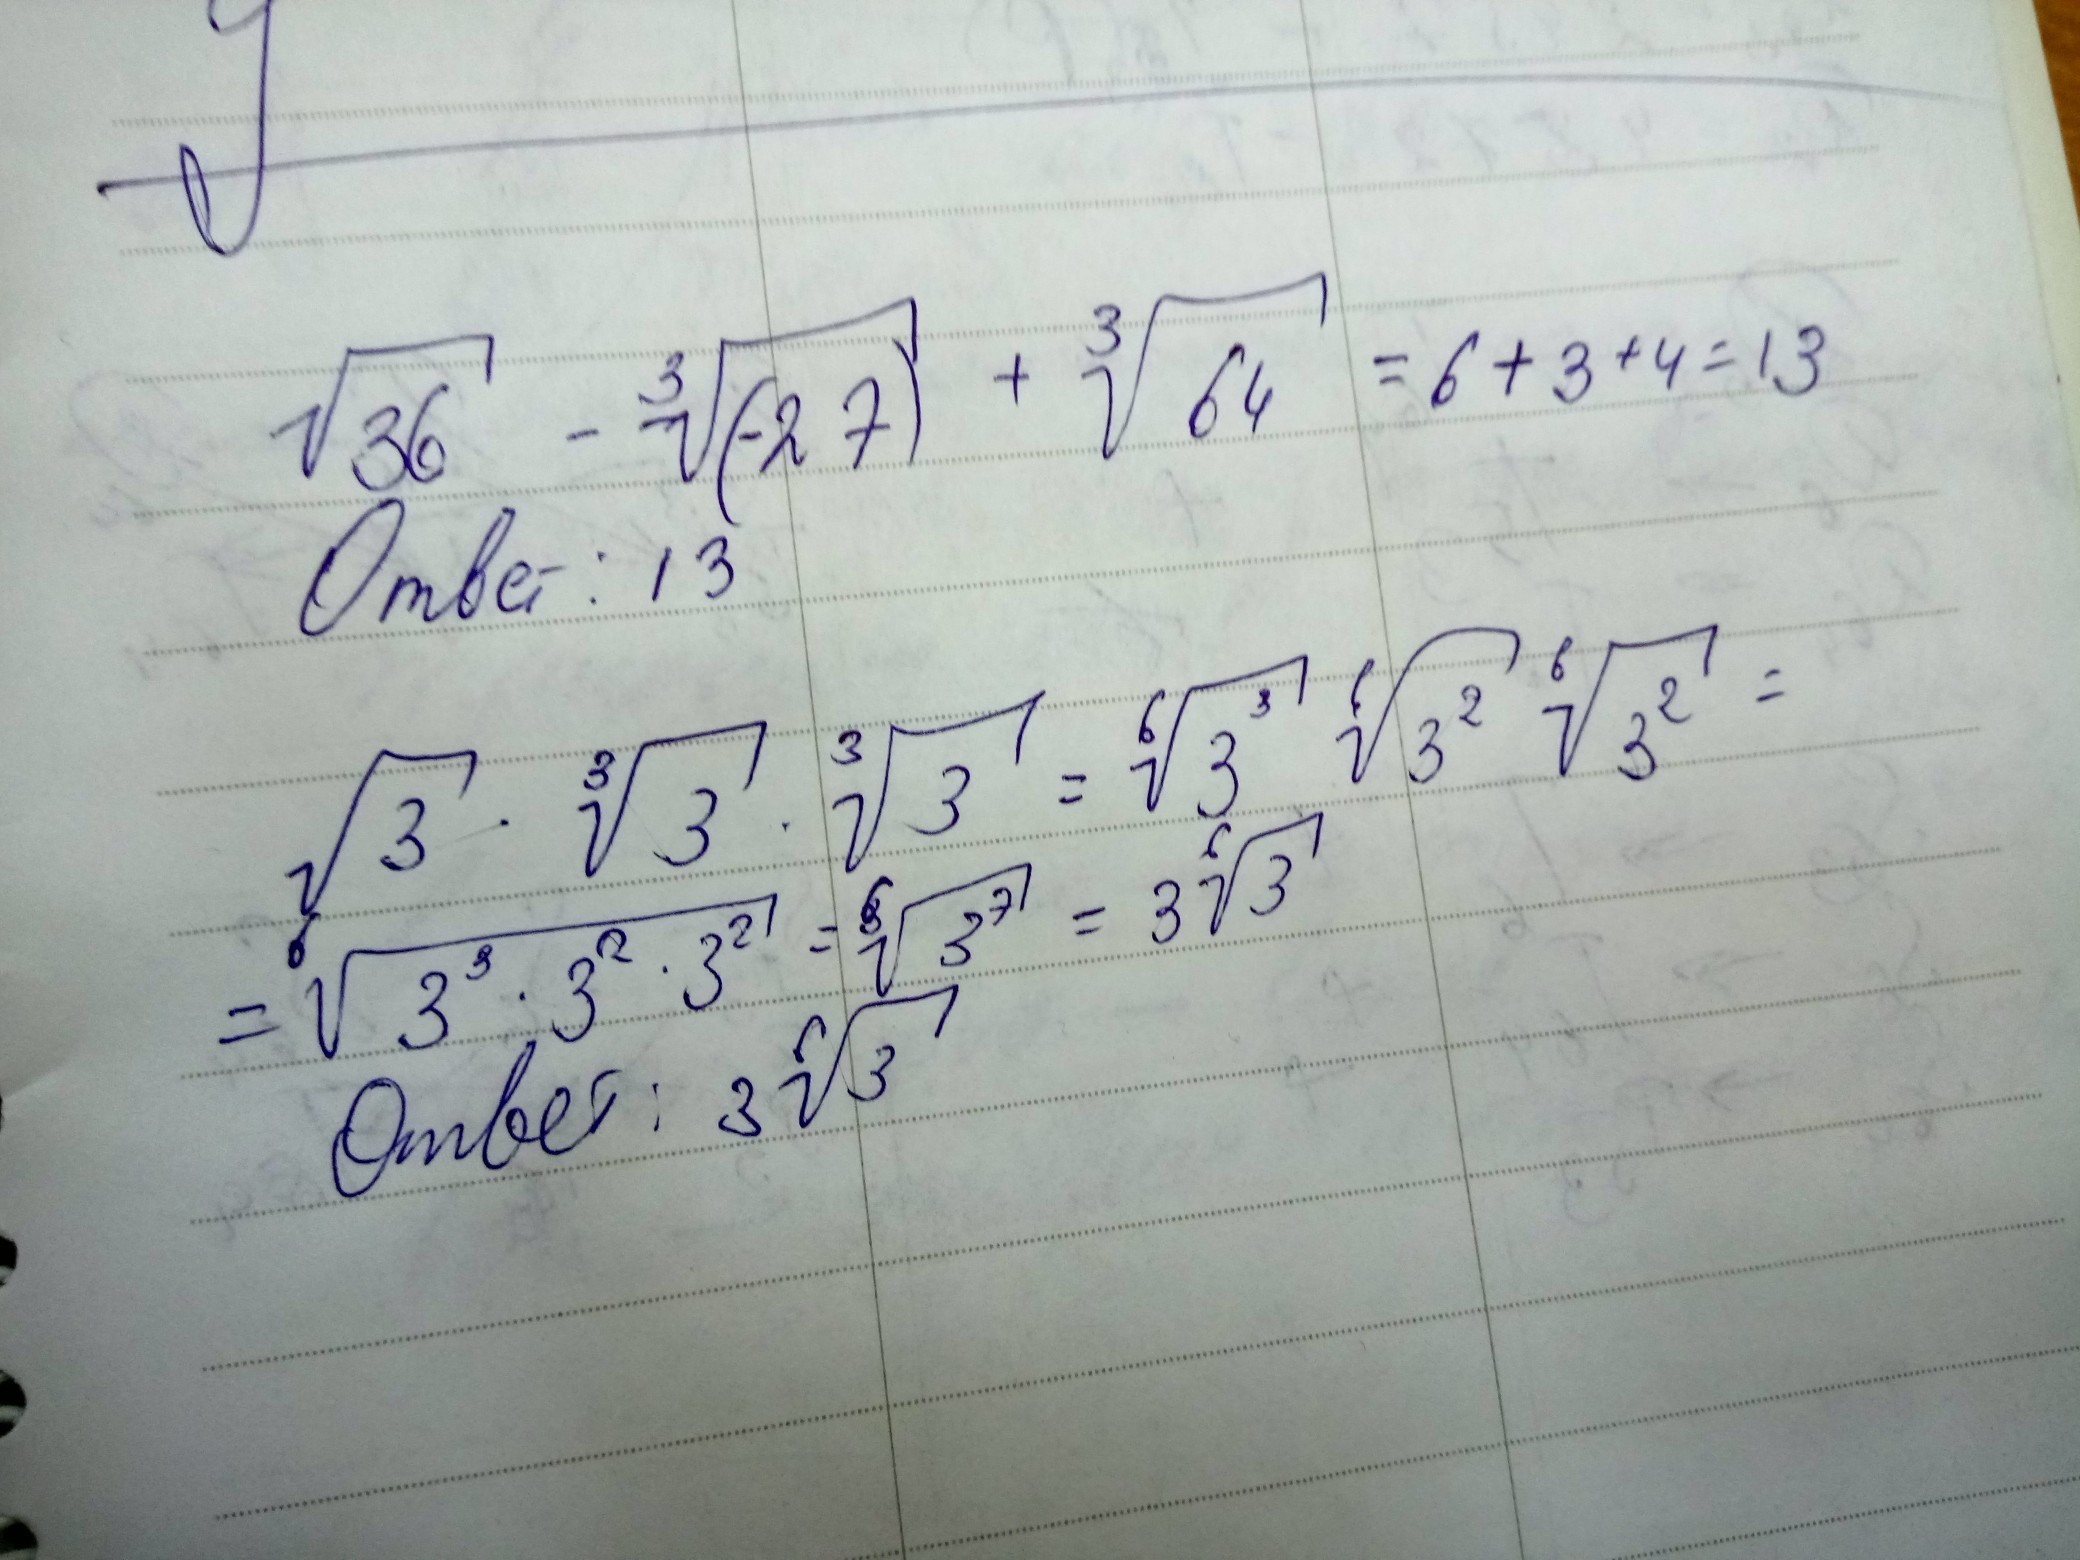 √36 - ³√(-27) + ³√64 = 6 + 3 + 4 = 13
Ответ: 13
√3 · ³√3 · ³√3 = ⁶√3³ ⁶√3² ⁶√3² =
= ⁶√3³ · 3² · 3² = ⁶√3⁷ = 3 ⁶√3
Ответ: 3 ⁶√3